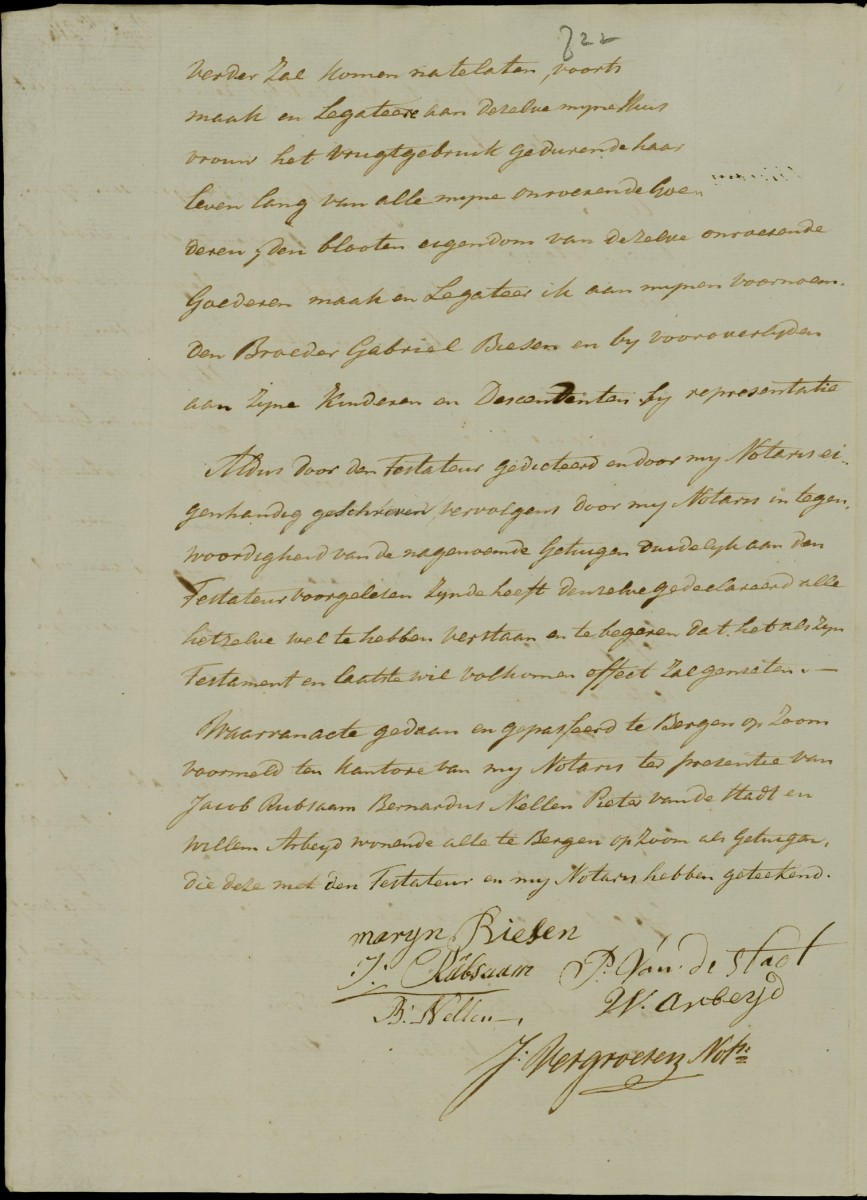 322
verder zal komen natelaten, voorts
maak en Legateere aan dezelve myne Huis
vrouw het vrugtgebruik gedurende haar
leven lang van alle myne onroerende Goe
deren, den blooten eigendom van dezelve onroerende
Goederen maak en Legateer ik aan mynen voornoem-
den Broeder Gabriel Biesen en by vooroverlyden
aan zyne Kinderen en Descendenten by representatie
Aldus door den Testateur gedicteerd en door my Notaris ei-
genhandig geschreven, vervolgens door my Notaris in tegen-
woordigheid van de nagenoemde Getuigen duidelyk aan den
Testateur voorgelesen zynde heeft denzelve gedeclareerd alle
hetzelve wel te hebben verstaan en te begeren dat het als zyn
Testament en laatste wil volkomen effect zal genieten.—
Waarvan acte gedaan en gepasseerd te Bergen op Zoom
voormeld ten kantore van my Notaris ter presentie van
Jacob Rubsaam Bernardus Nellen Pieter van de Stadt en
Willem Arbeyd wonende alle te Bergen op Zoom als Getuigen,
die deze met den Testateur en my Notaris hebben geteekend.
maryn Biesen
J: Rübsaam P. Van de Stadt
B: Nellen W. Arbeyd
J: Vergroesen Nots: